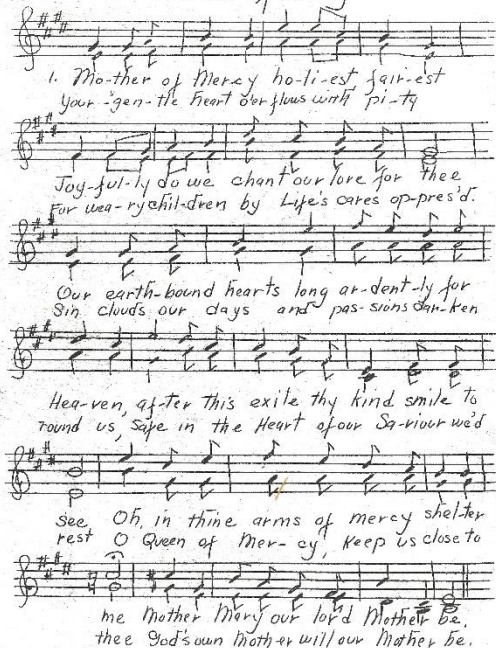 1. Mo-ther of Mer-cy ho-li-est fair-est
Your gen-tle heart o'er flows with pi-ty
Joy-ful-ly do we chant our love for thee
For wea-ry chil-dren by Life's cares op-pres'd.
Our earth-bound hearts long ar-dent-ly for
Sin clouds our days and pas-sions dar-ken
Hea-ven, af-ter this exile thy kind smile to
round us, Safe in the Heart of our Sa-viour we'd
see Oh, in thine arms of mercy shel-ter
rest O Queen of Mer-cy, keep us close to
me Mother Mary our lov'd Mother be.
thee God's own Moth-er will our Mother be.